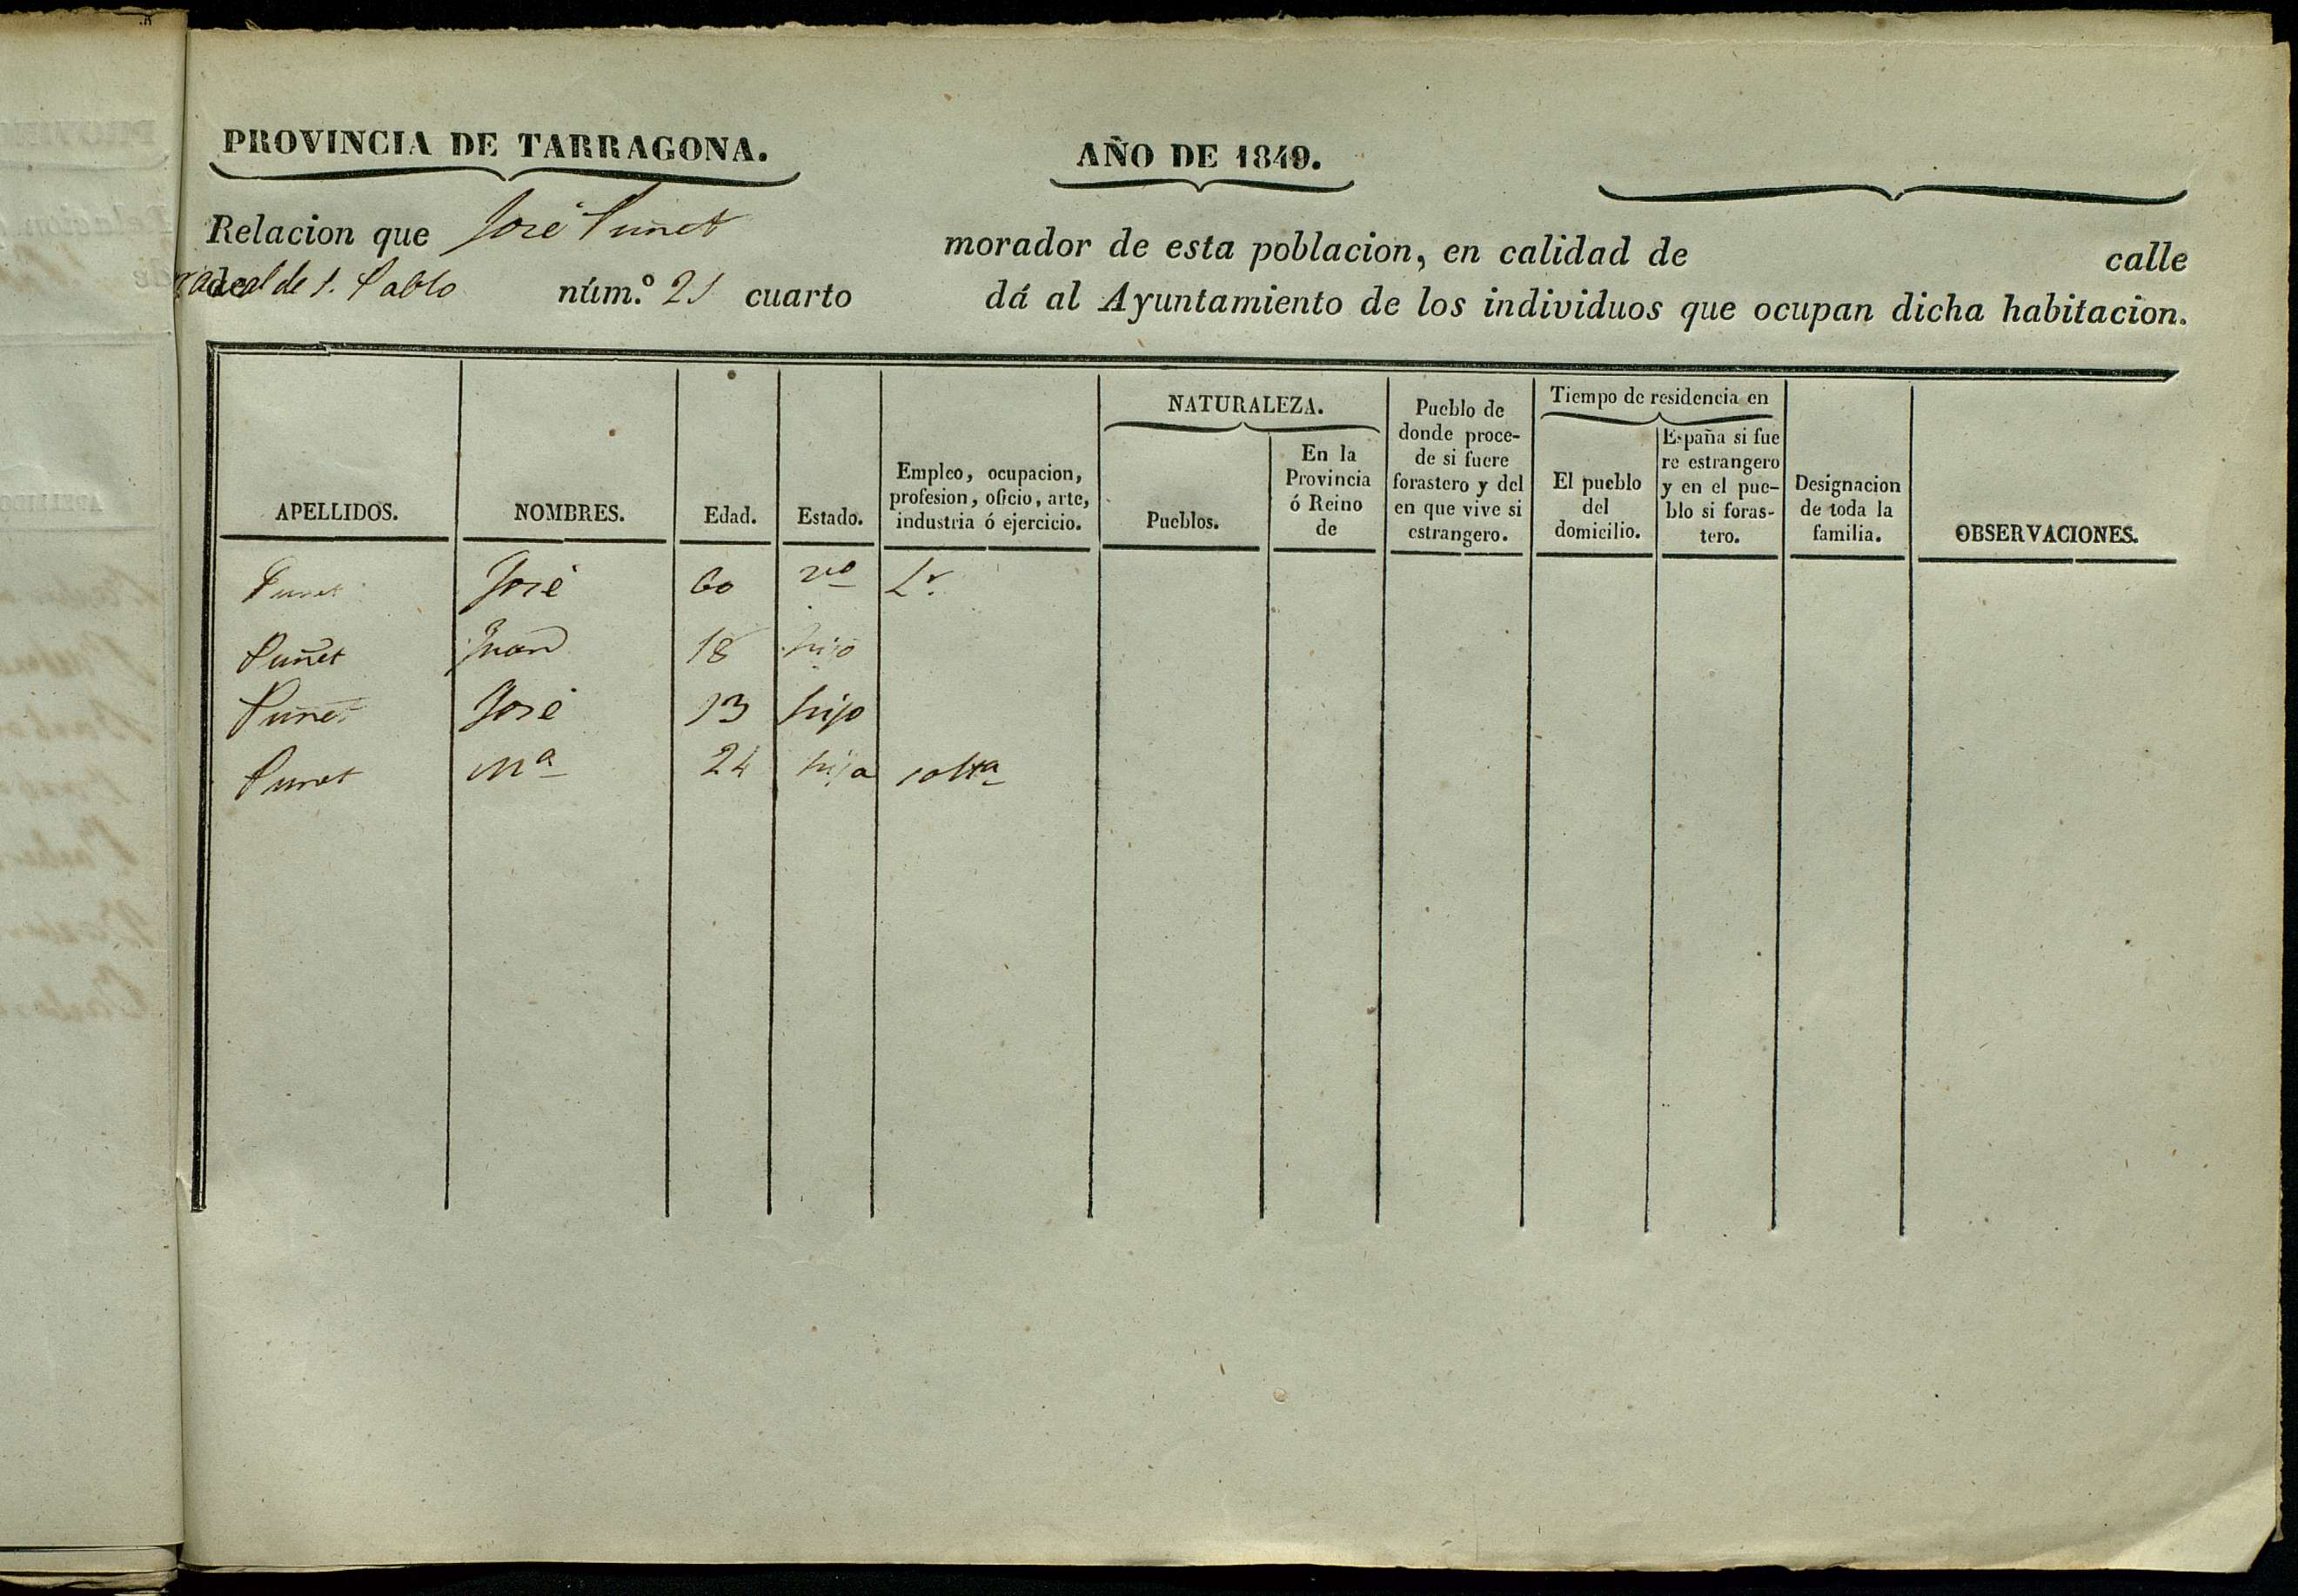 PROVINCIA DE TARRAGONA.
AÑO DE 1849.
Relacion que José Puñet morador de esta poblacion, en calidad de calle
de S. Pablo núm.º 21 cuarto dá al Ayuntamiento de los individuos que ocupan dicha habitacion.
APELLIDOS.
NOMBRES.
Edad.
Estado.
Empleo, ocupacion,
profesion, oficio, arte,
industria ó ejercicio.
NATURALEZA.
Pueblos.
En la
Provincia
ó Reino
de
Pueblo de
donde proce-
de si fuere
forastero y del
en que vive si
estrangero.
Tiempo de residencia en
El pueblo
del
domicilio.
España si fue
re estrangero
y en el pue-
blo si foras-
tero.
Designacion
de toda la
familia.
OBSERVACIONES.
Punet José 60 vº Lr.
Puñet Juan 18 hijo
Puñet José 13 hijo
Punet Mª 24 hija soltª